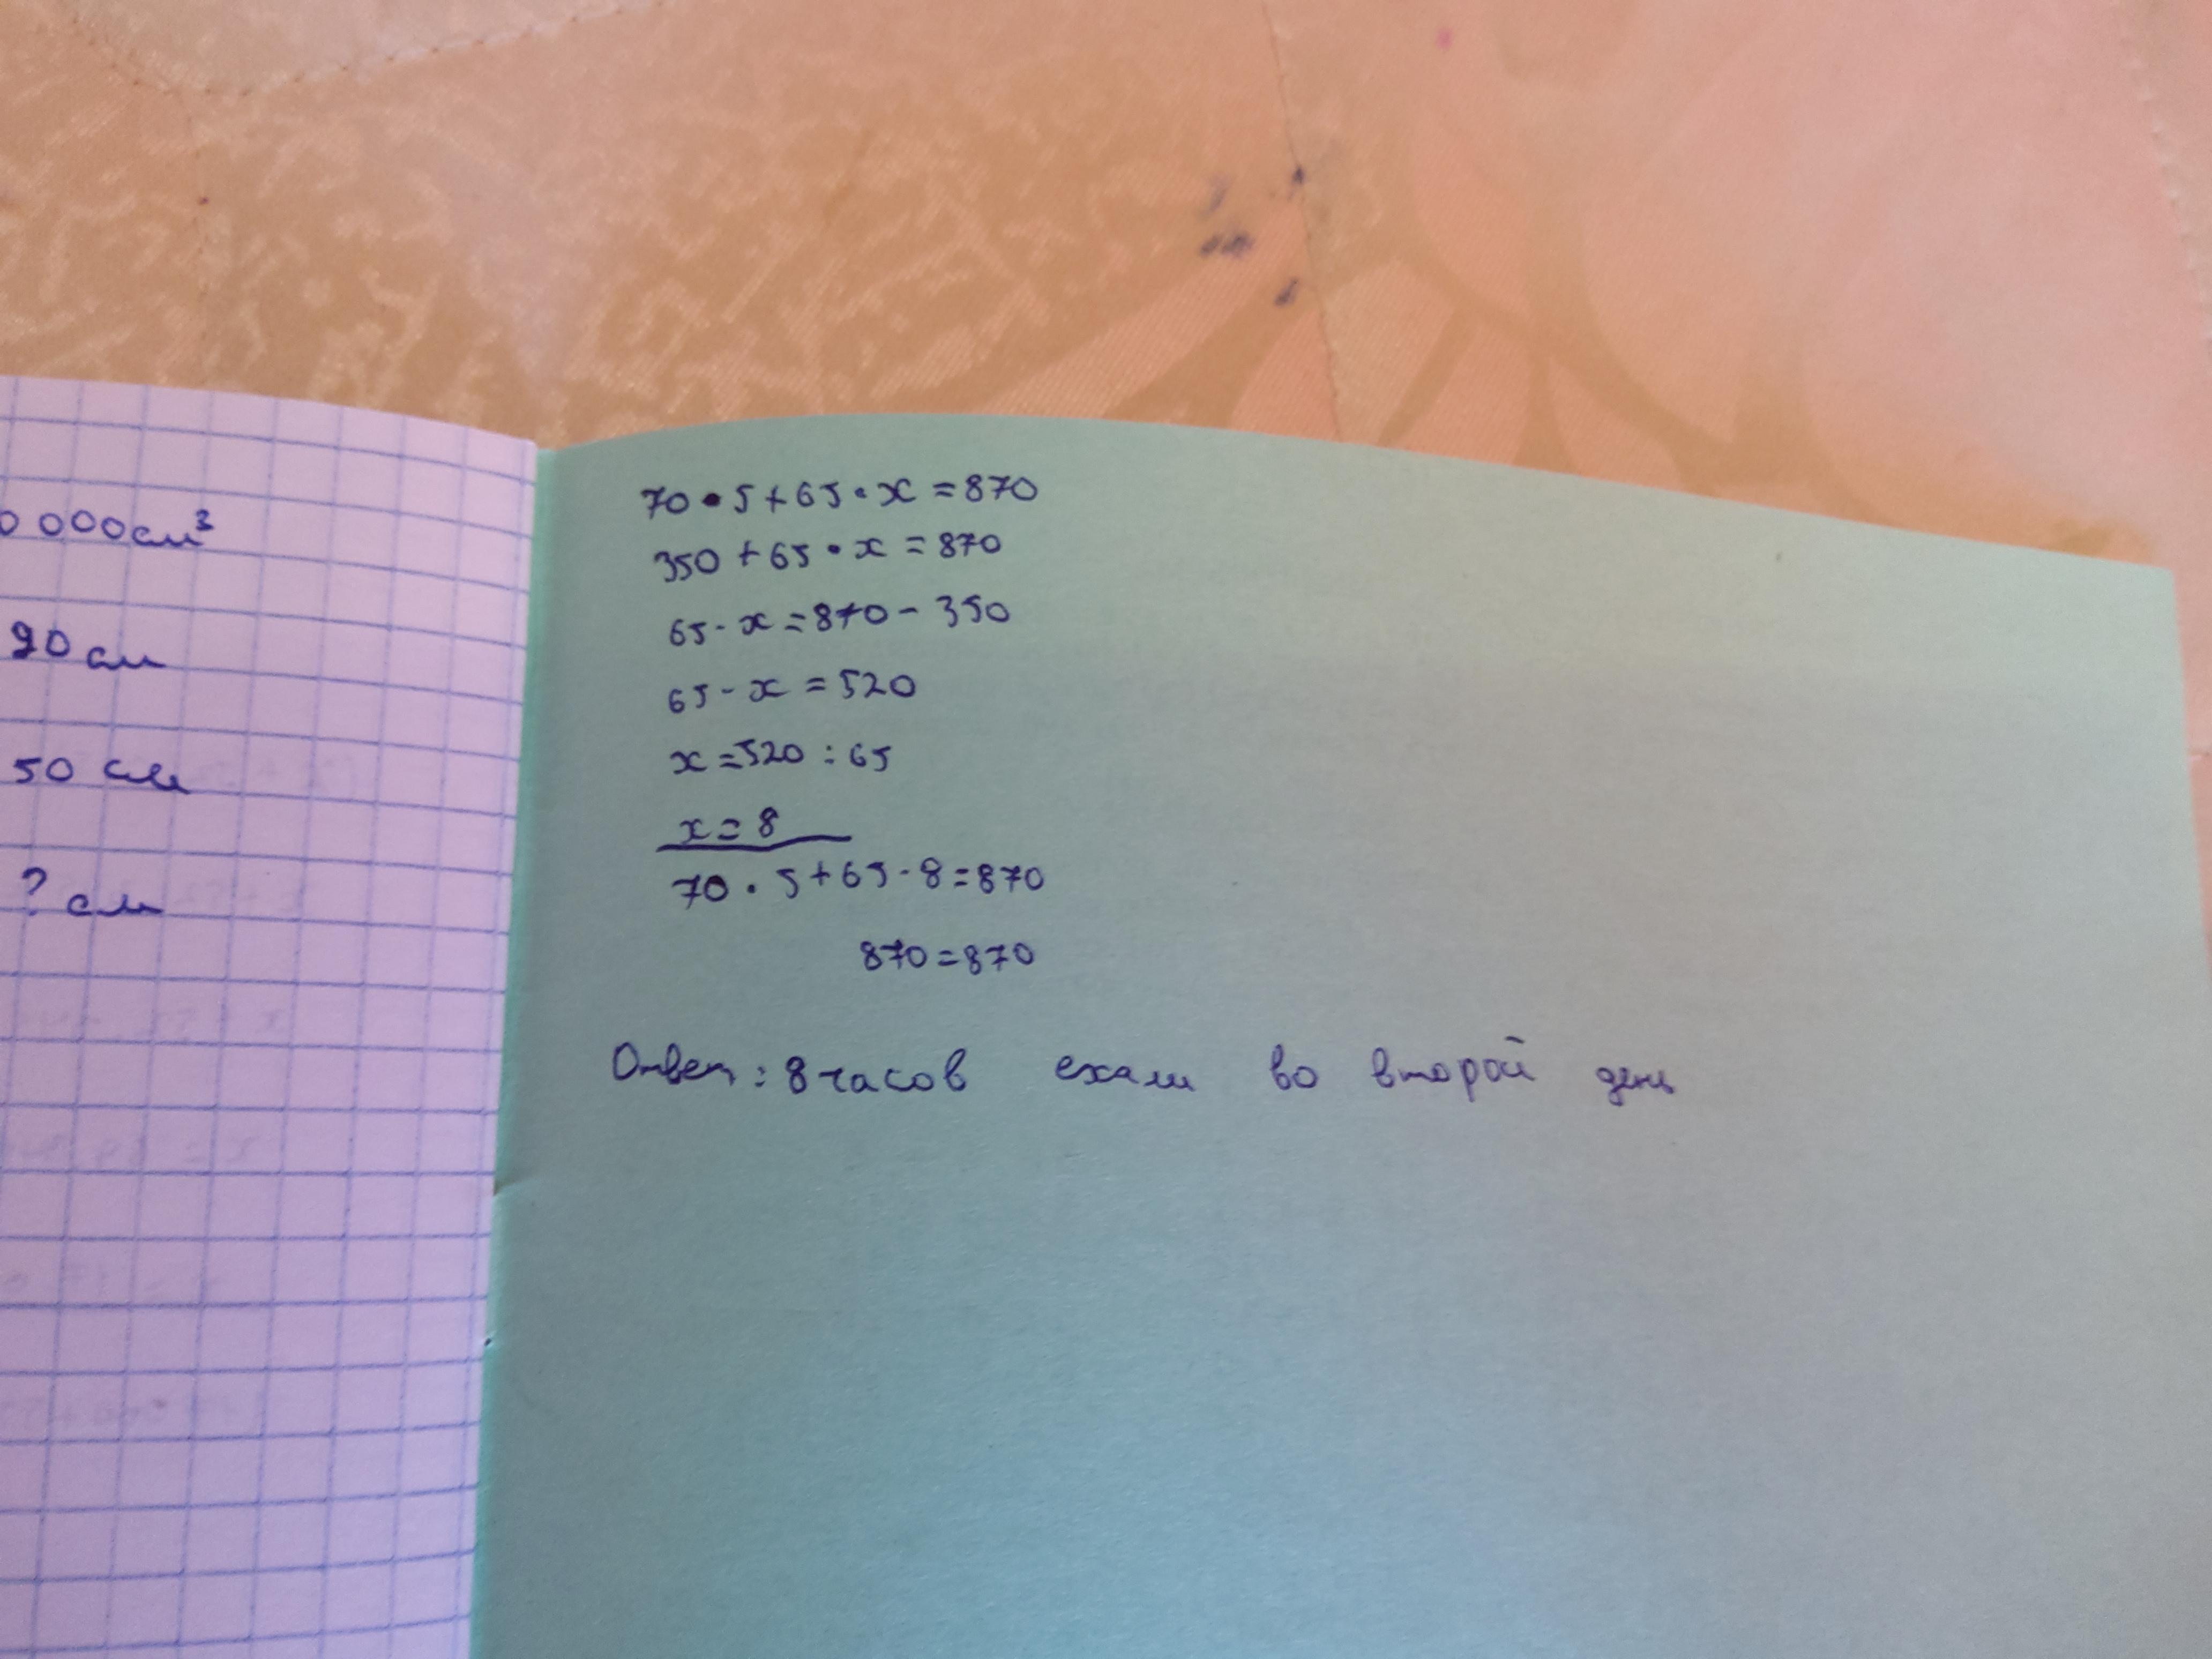 0 000 см³
90 см
50 см
? см
70 • 5 + 65 • x = 870
350 + 65 • x = 870
65 · x = 870 - 350
65 · x = 520
x = 520 : 65
x = 8
70 · 5 + 65 · 8 = 870
870 = 870
Ответ: 8 часов ехали во второй день